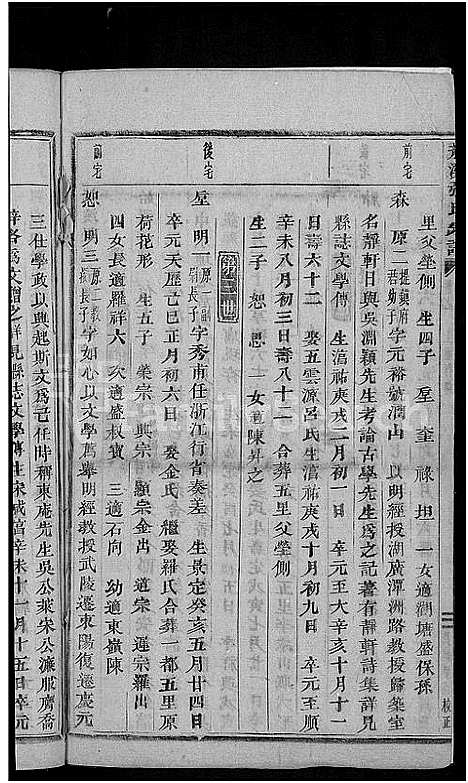 里父塋側　生四子　垕　奎　祿　坦　一女適湖塘盛保孫
前宅
森　原二提領府君垚嫡子　字元裕號澗山以明經授湖廣潭洲路教授歸築室
名靜軒日與吳淵穎先生考論古學先生為之記著有靜軒詩集詳見
縣誌文學傳　生淳祐庚戌二月初一日　卒元至大辛亥十月十一
日壽六十二　娶五雲源呂氏生淳祐庚戌十月初九日　卒元至順
辛未八月初三日壽八十二　合葬五里父塋側
生二子　恕　思　一女適陳昇之
第三世
後宅
垕　明一原一副尉長子　字秀甫任浙江行省奏差　生景定癸亥五月廿四日
卒元天歷己巳正月初六日　娶金氏　繼娶羅氏合葬一都五里原
荷花形　生五子　榮宗　興宗　顯宗金出　道宗　遲宗羅出
四女長適羅祥六　次適盛叔寶　三適石向　幼適東嶺陳
前宅
恕　明三原二教授長子　字如心以文學薦舉明經教授武陵遷東陽復遷慶元
三仕學政以興起斯文為己任時稱東庵先生吳公萊宋公濂服膺喬
梓各為文贈之詳見縣志文學傳生宋咸淳辛未十一月十五日卒元
校正